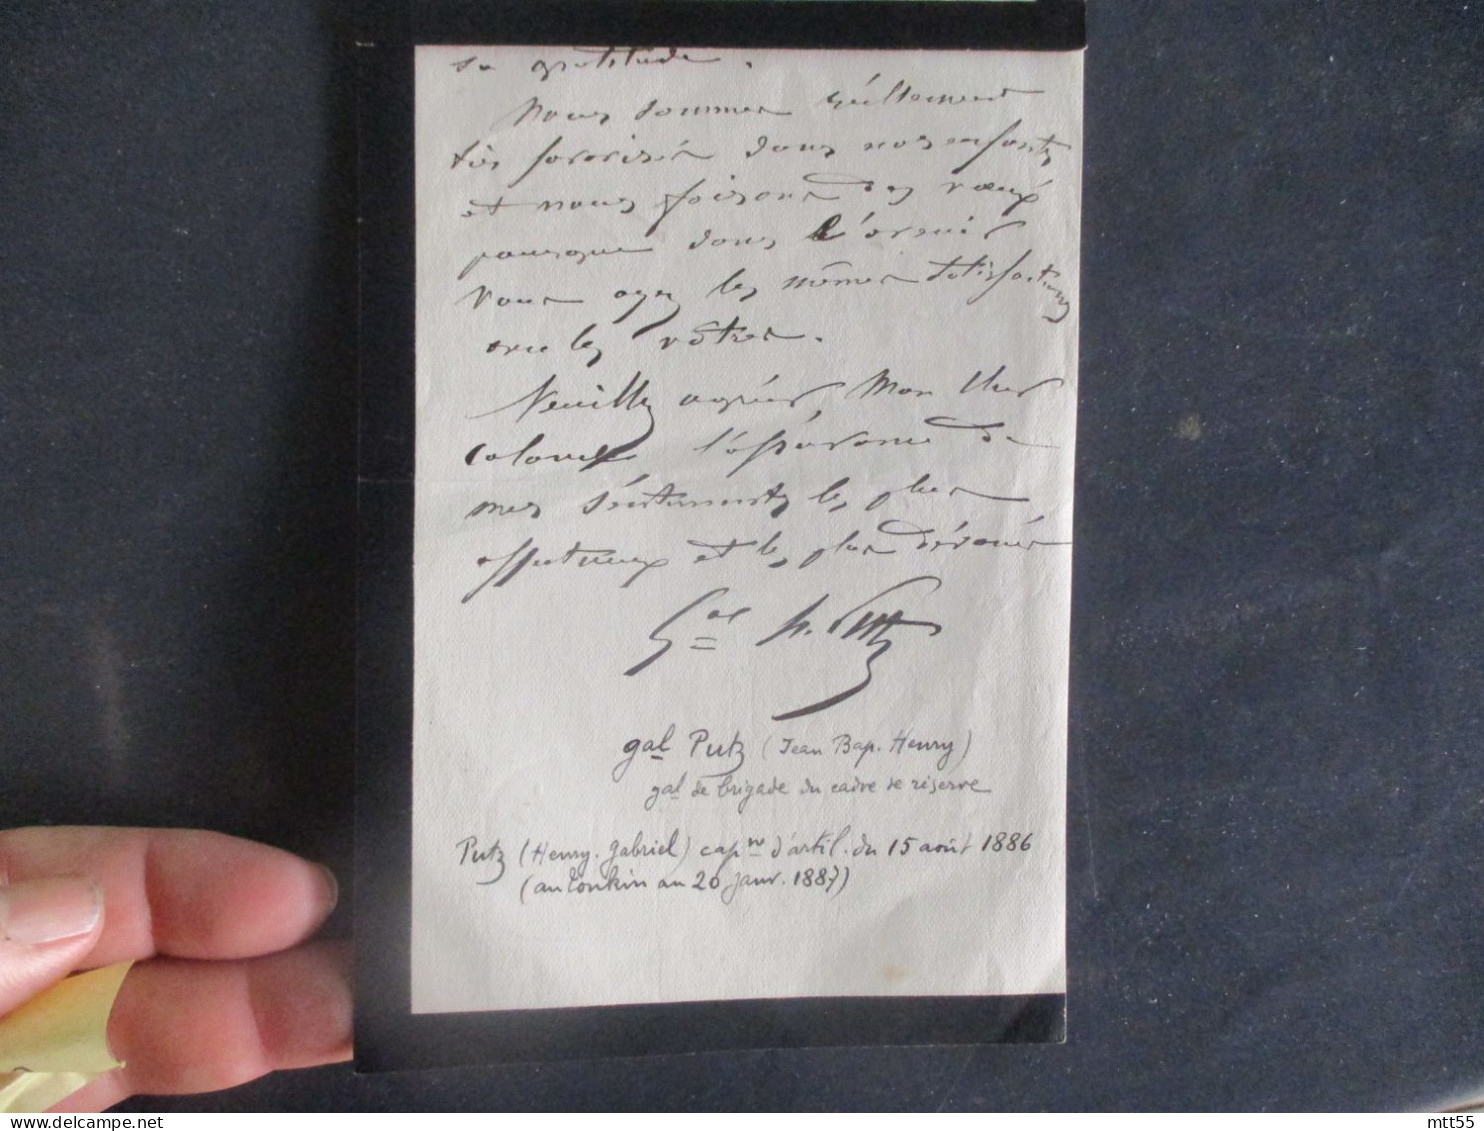 sa gratitude.
Nous sommes réellement
très favorisés dans nos enfants
et nous faisons des vœux
pourque dans l'avenir
vous ayez les mêmes satisfactions
avec les vôtres.
Veuillez agréer Mon Cher
Colonel l'assurance de
mes sentiments les plus
affectueux et les plus dévoués
Gal H. Putz
gal Putz (Jean Bap. Henry)
gal de brigade du cadre de réserve
Putz (Henry. Gabriel) capne d'artil. du 15 août 1886
(au Tonkin au 20 janv. 1887)
mtt55